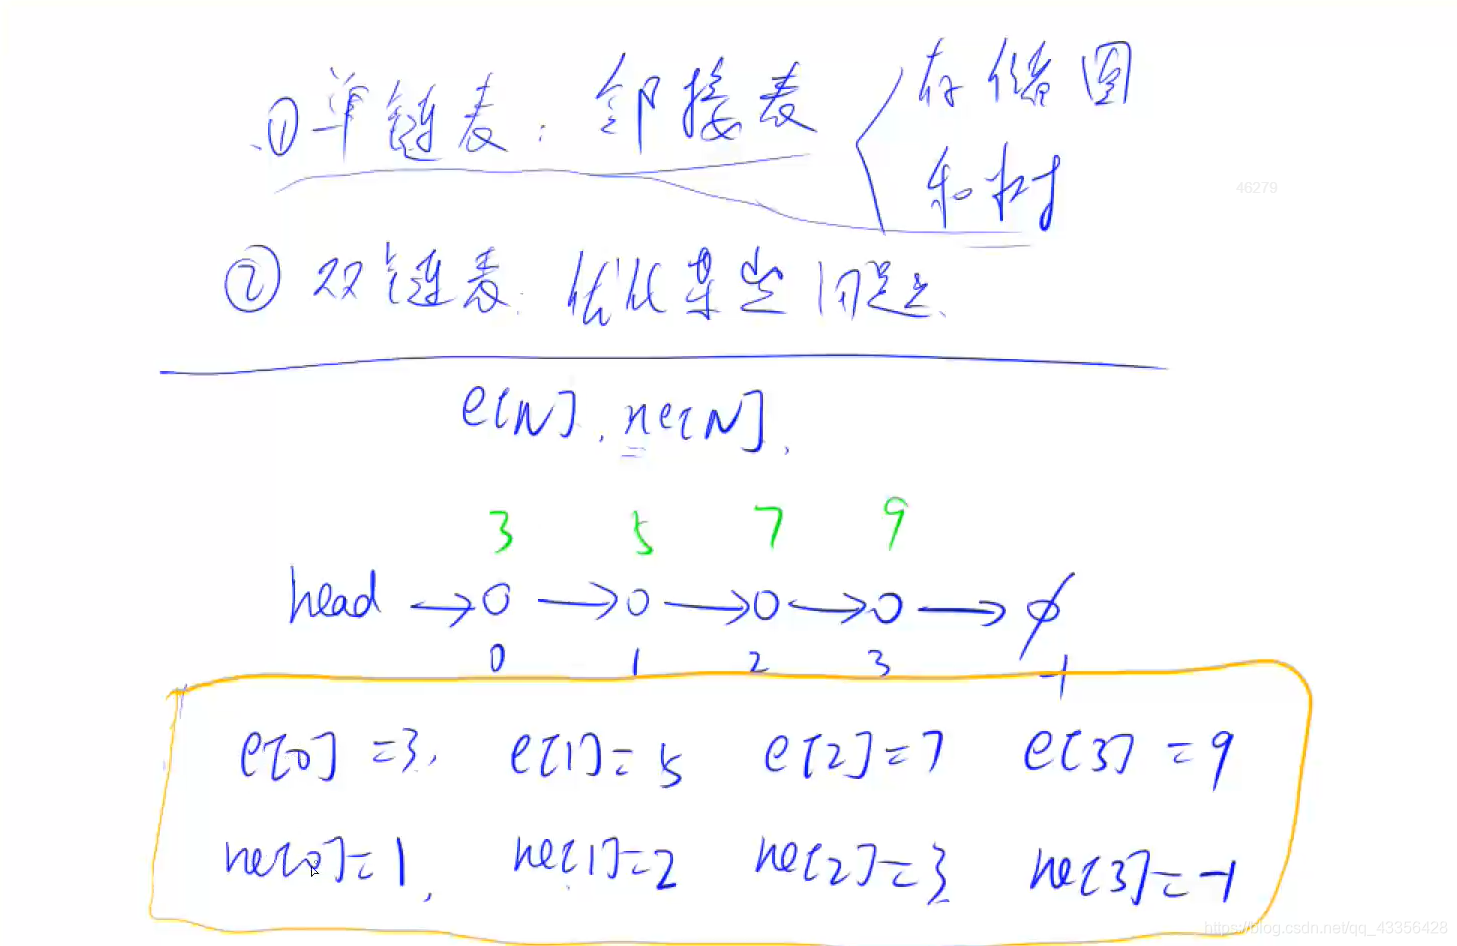 ①单链表：邻接表 存储图
和树
46279
②双链表：优化某些问题.
e[N], ne[N],
3 5 7 9
head → O → O → O → O → ∅
0 1 2 3 -1
e[0]=3, e[1]=5 e[2]=7 e[3]=9
ne[0]=1, ne[1]=2 ne[2]=3 ne[3]=-1
https://blog.csdn.net/qq_43356428